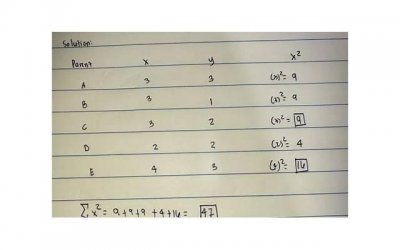 Solution:
Parent x y x²
A 3 3 (3)² = 9
B 3 1 (3)² = 9
C 3 2 (3)² = 9
D 2 2 (2)² = 4
E 4 3 (4)² = 16
∑x² = 9+9+9+4+16 = 47